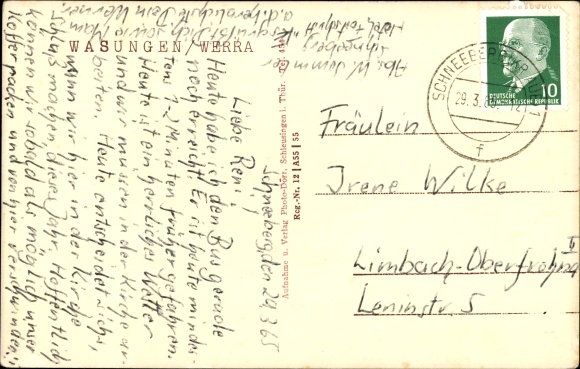 WASUNGEN/WERRA
Schneeberg, den 29.3.65
Liebe Reni!
Heute habe ich den Bus gerade
noch erreicht. Er ist heute minde-
stens 1-2 Minuten früher gefahren.
Heute ist ein herrliches Wetter
und wir müssen in der Kirche ar-
beiten. Heute entscheidet sichs,
wann wir hier in der Kirche
Schluß machen, diese Jahr. Hoffentlich
können wir sobald als möglich unser
Koffer packen und von hier verschwinden.
grüßt Dich sowie Mam
a.d. herzlichste Dein Werner
Abs. W.
Schneeberg
Aufnahme u. Verlag Photo-Dörr, Schleusingen i. Thür. Tel.
Reg.-Nr. 12 | A55 | 55
DEUTSCHE
DEMOKRATISCHE REPUBLIK
10
SCHNEEBERG
29.3.65
Fräulein
Irene Wilke
Limbach-Oberfrohna
Leninstr. 5